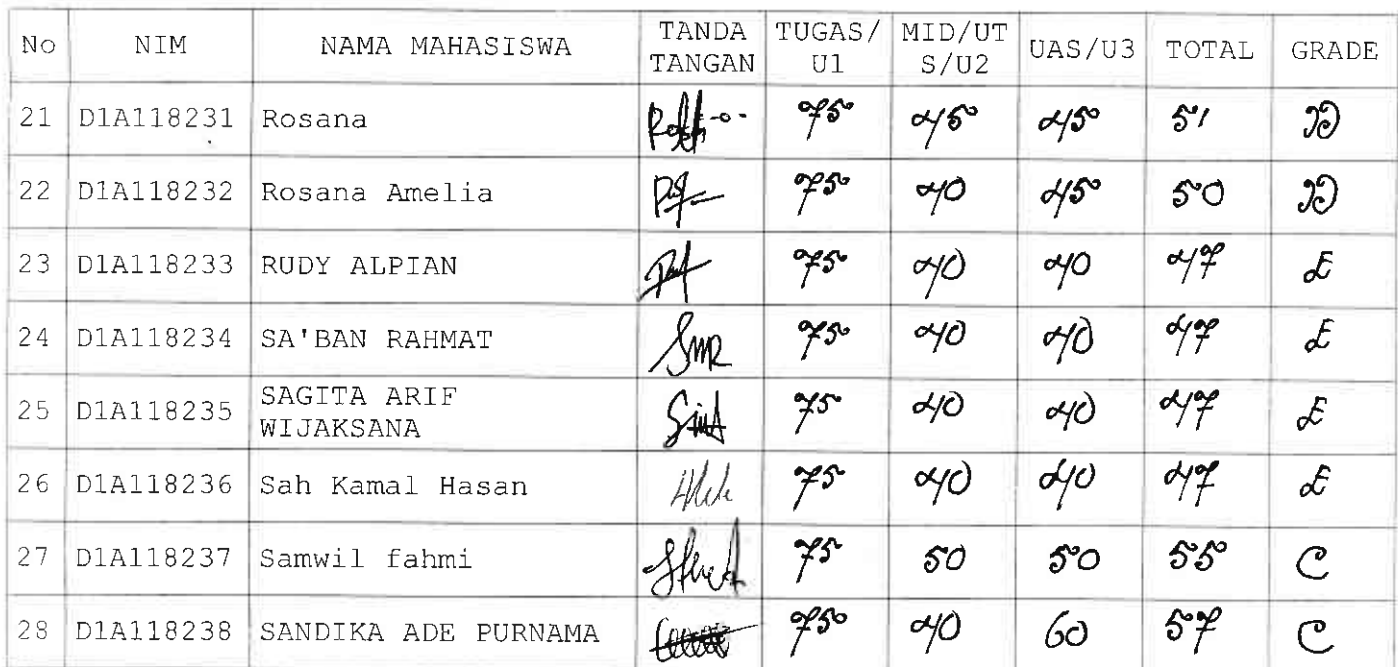 No NIM NAMA MAHASISWA TANDA TANGAN TUGAS/U1 MID/UTS/U2 UAS/U3 TOTAL GRADE
21 D1A118231 Rosana 75 45 45 51 D
22 D1A118232 Rosana Amelia 75 40 45 50 D
23 D1A118233 RUDY ALPIAN 75 40 40 47 E
24 D1A118234 SA'BAN RAHMAT 75 40 40 47 E
25 D1A118235 SAGITA ARIF WIJAKSANA 75 40 40 47 E
26 D1A118236 Sah Kamal Hasan 75 40 40 47 E
27 D1A118237 Samwil fahmi 75 50 50 55 C
28 D1A118238 SANDIKA ADE PURNAMA 75 40 60 57 C